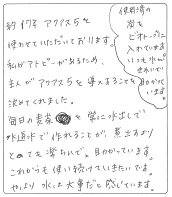 約17年 アクアス5を
使わせていただいております。
私がアトピーがあるため、
主人がアクアス5を導入することを
決めてくれました。
毎日の麦茶 を常に水出しで
水道水で作れることが、煮出すより
とっても楽ちんで、助かっています。
これからも使い続けていきたいです。
やっぱり水は大事だと感じています。
使用済の
炭を
ビオトープに
入れています
いつも水が
きれいで
助かって
います。